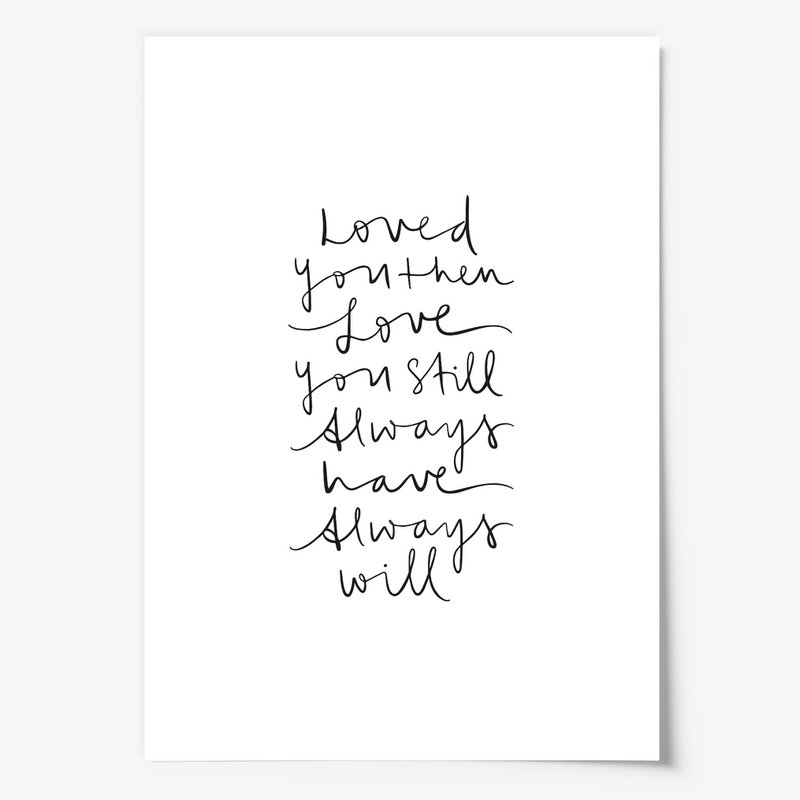 Loved
you then
Love
you still
Always
have
Always
will